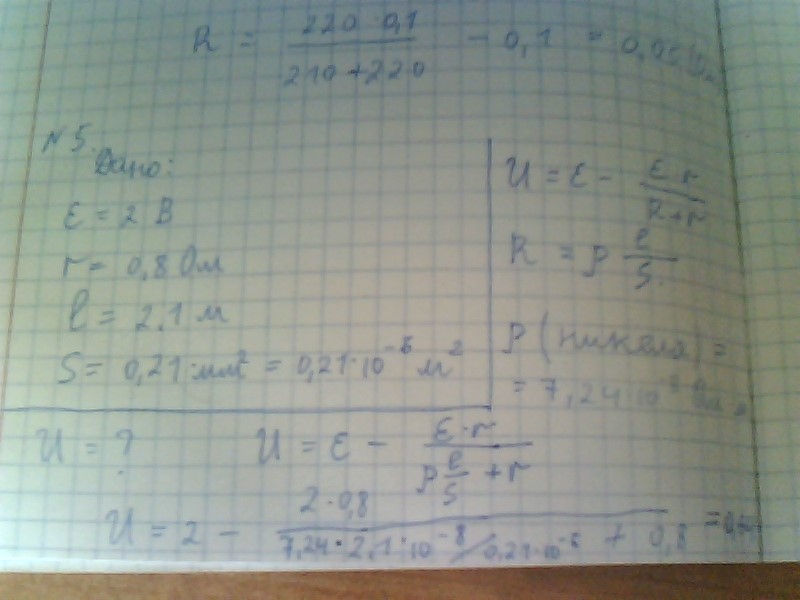 R = (220 · 0,1)/(210 + 220) - 0,1 =
N 5.
Дано:
ε = 2 В
r = 0,8 Ом
l = 2,1 м
S = 0,21 мм² = 0,21·10⁻⁶ м²
U = ε - (ε·r)/(R+r)
R = ρ l/S
ρ (никеля) =
= 7,24·10⁻⁸
U = ?
U = ε - (ε·r)/(ρ l/S + r)
U = 2 - (2·0,8)/(7,24·2,1·10⁻⁸/0,21·10⁻⁶ + 0,8) =